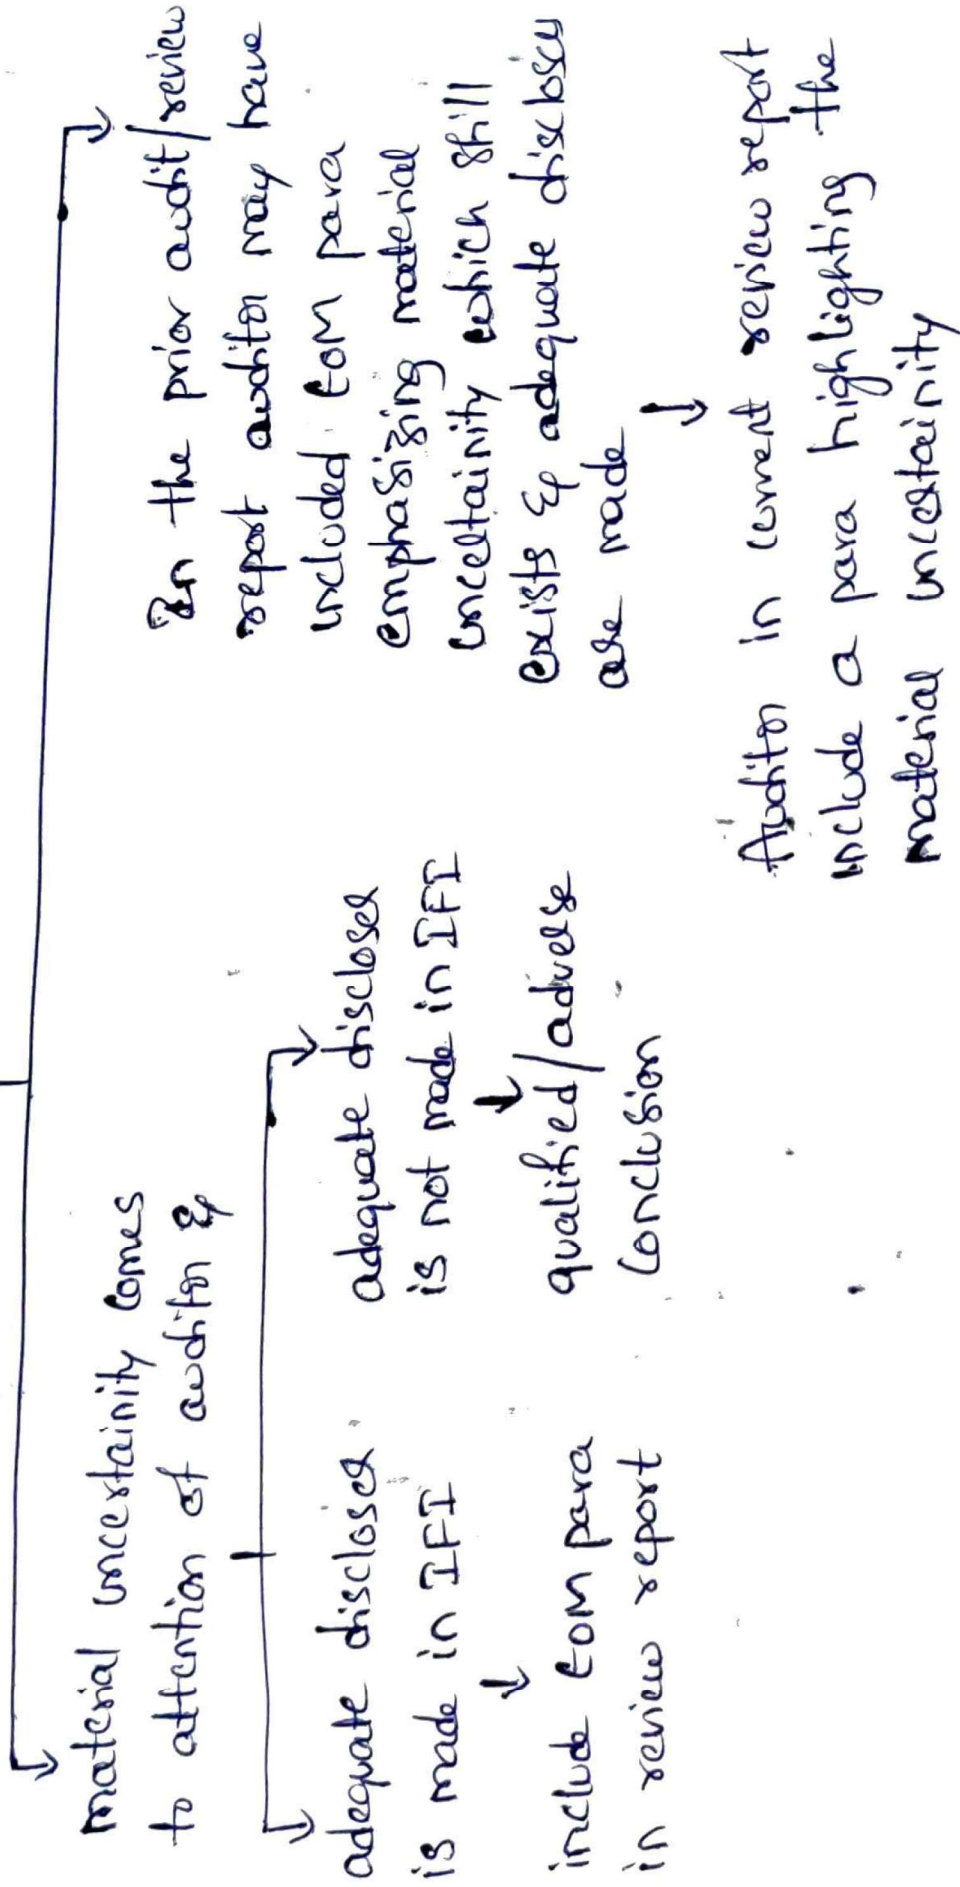 material uncertainity comes
to attention of auditor &
adequate discloser
is made in IFI
include EOM para
in review report
adequate discloser
is not made in IFI
qualified/adverse
conclusion
In the prior audit/review
report auditor may have
included EOM para
emphasizing material
uncertainity which still
exists & adequate disclosu
are made
Auditor in current review report
include a para highlighting the
material uncertainity